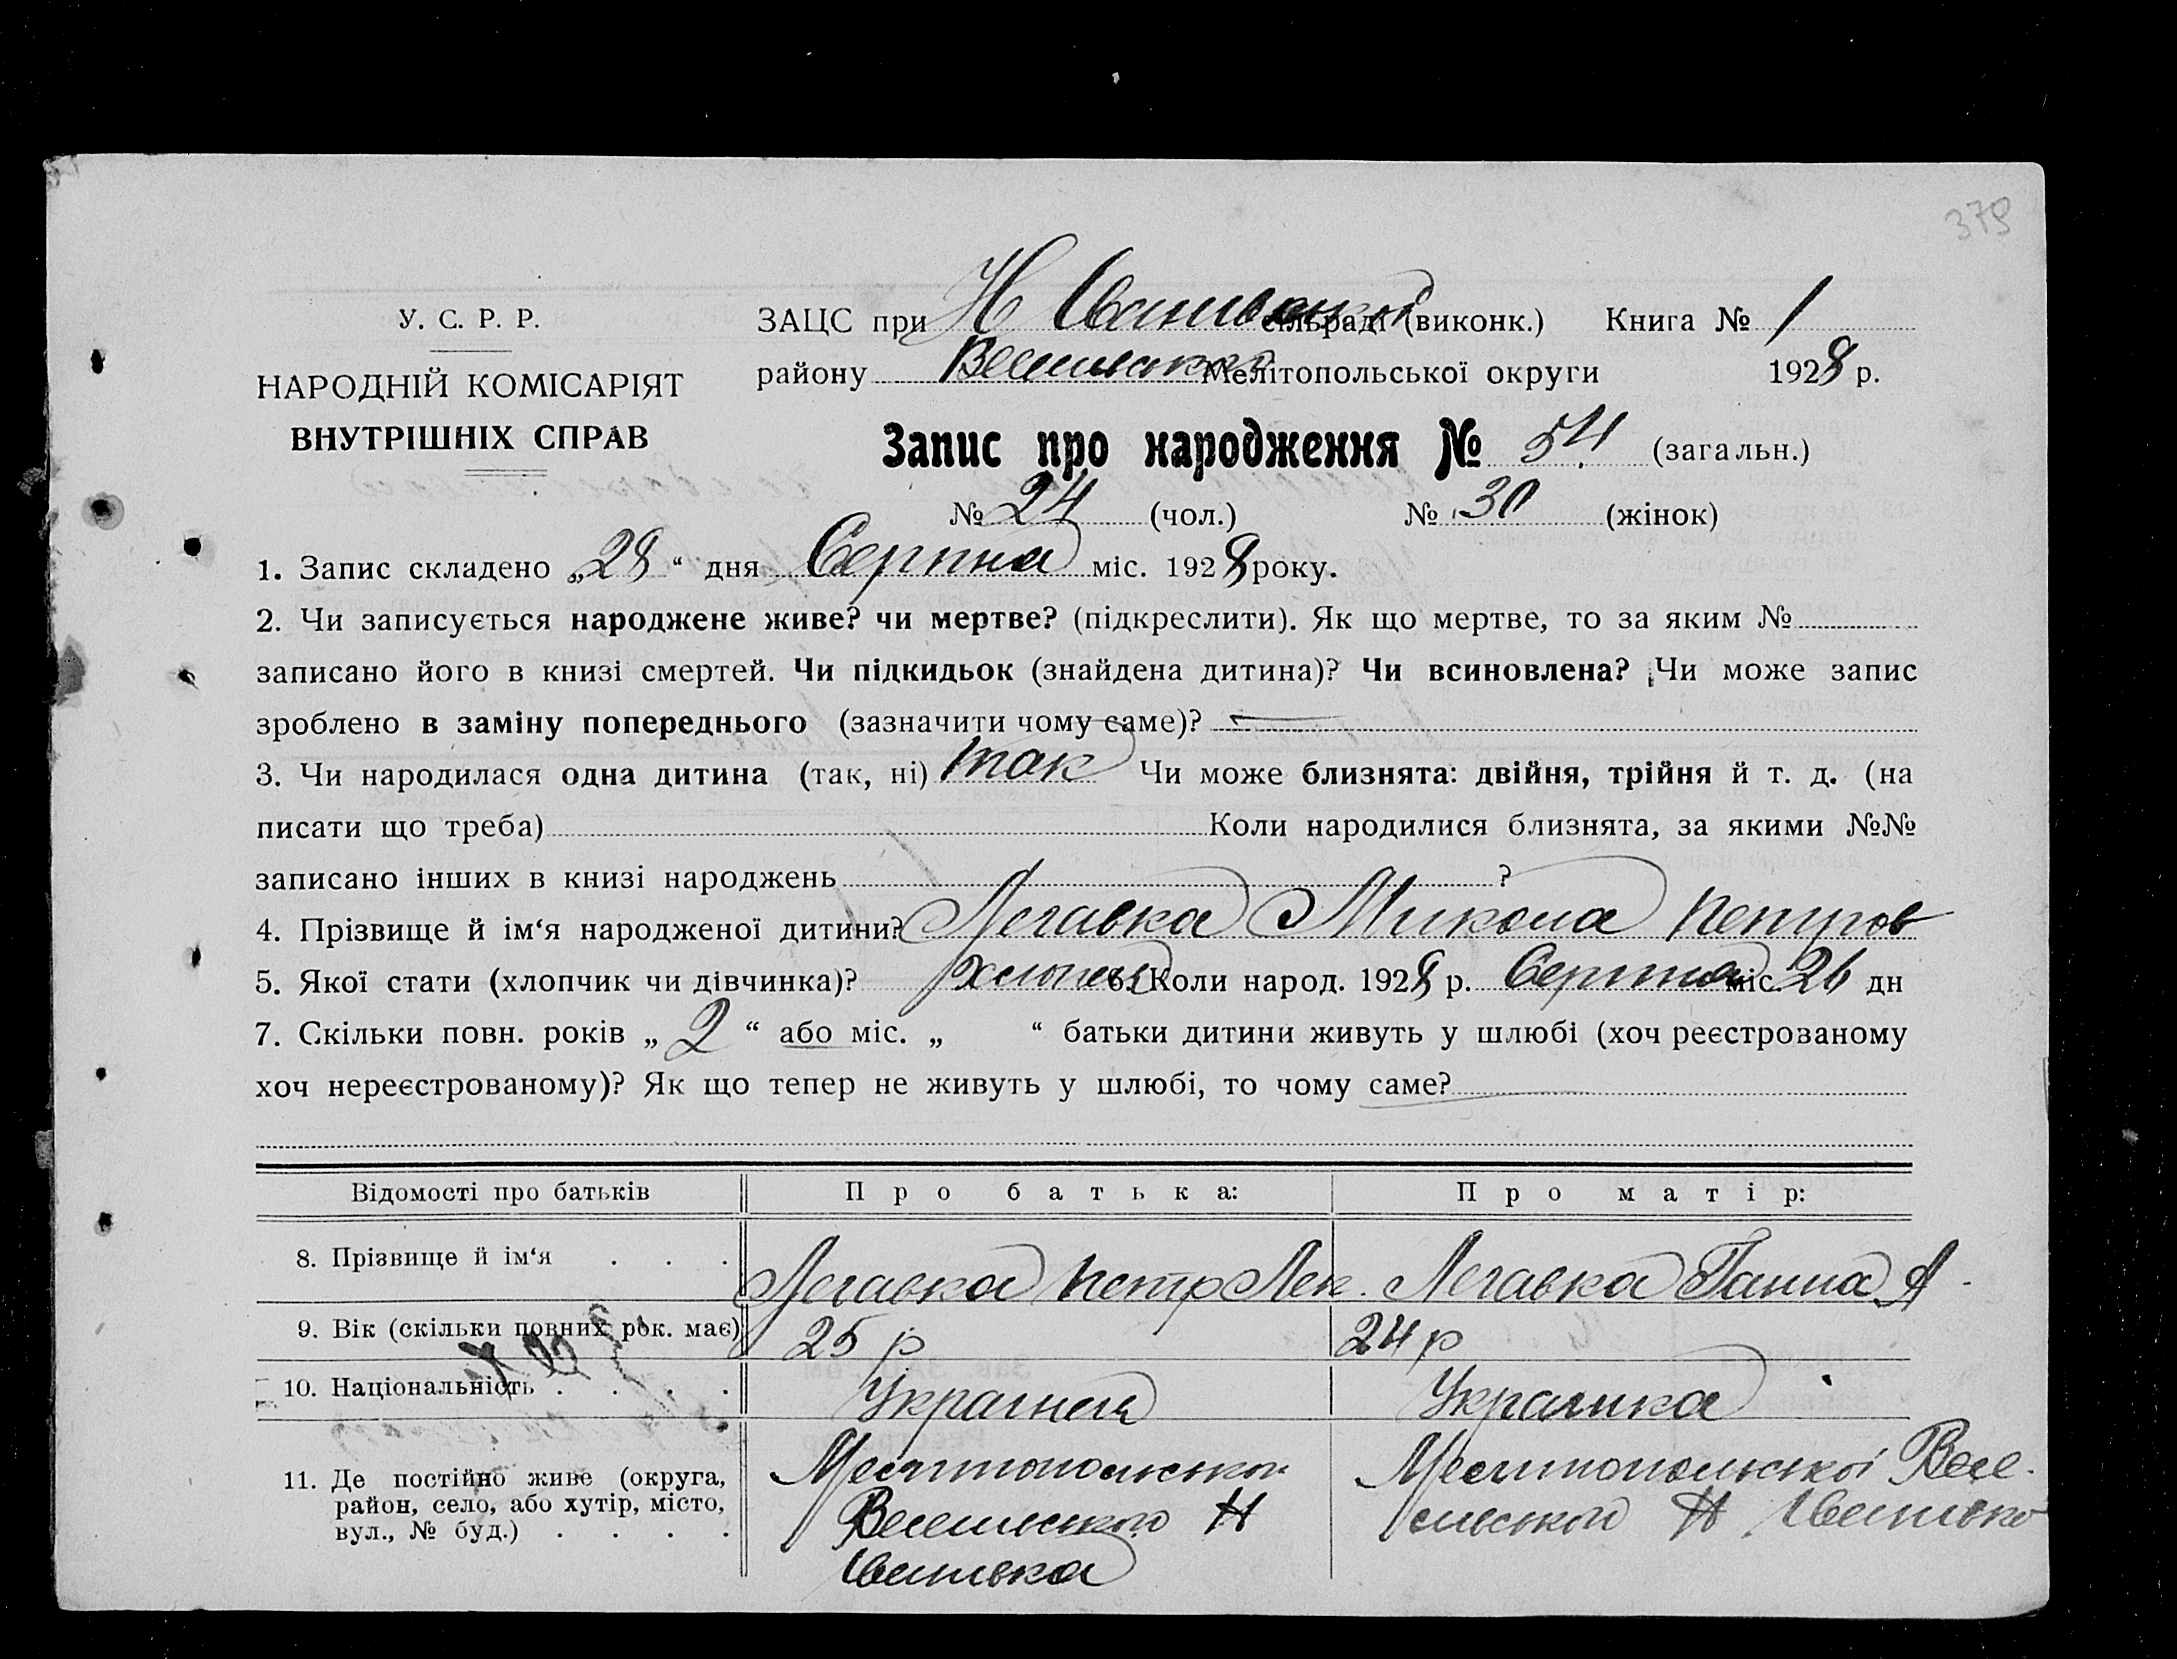 379
У. С. Р. Р.
НАРОДНІЙ КОМІСАРІЯТ
ВНУТРІШНІХ СПРАВ
ЗАЦС при Н сільраді (виконк.) Книга № 1
району Веселівсько Мелітопольської округи 1928 р.
Запис про народження № 54 (загальн.)
№ 24 (чол.) № 30 (жінок)
1. Запис складено „28“ дня Серпня міс. 1928 року.
2. Чи записується народжене живе? чи мертве? (підкреслити). Як що мертве, то за яким №
записано його в книзі смертей. Чи підкидьок (знайдена дитина)? Чи всиновлена? Чи може запис
зроблено в заміну попереднього (зазначити чому саме)? —
3. Чи народилася одна дитина (так, ні) так Чи може близнята: двійня, трійня й т. д. (на
писати що треба) Коли народилися близнята, за якими №№
записано інших в книзі народжень ?
4. Прізвище й ім‘я народженої дитини? Легавка Микола Петров
5. Якої стати (хлопчик чи дівчинка)? хлопець 6. Коли народ. 1928 р. Серпня міс. 26 дн
7. Скільки повн. років „ 2 “ або міс. „ “ батьки дитини живуть у шлюбі (хоч реєстрованому
хоч нереєстрованому)? Як що тепер не живуть у шлюбі, то чому саме?
Відомості про батьків Про батька: Про матір:
8. Прізвище й ім‘я . . . Легавка Петр Лек. Легавка Ганна А
9. Вік (скільки повних рок. має) 25 р 24 р
10. Національність . . . . Українец Українка
11. Де постійно живе (округа,
район, село, або хутір, місто,
вул., № буд.) . . . .
Мелітопольсько
Веселівсько Н
Мелітопольскої Весе-
лівської Н